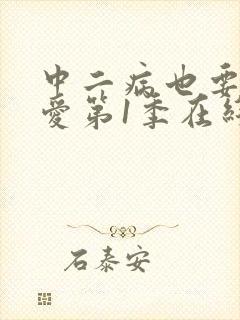 中二病也要
愛第1季在
石泰安